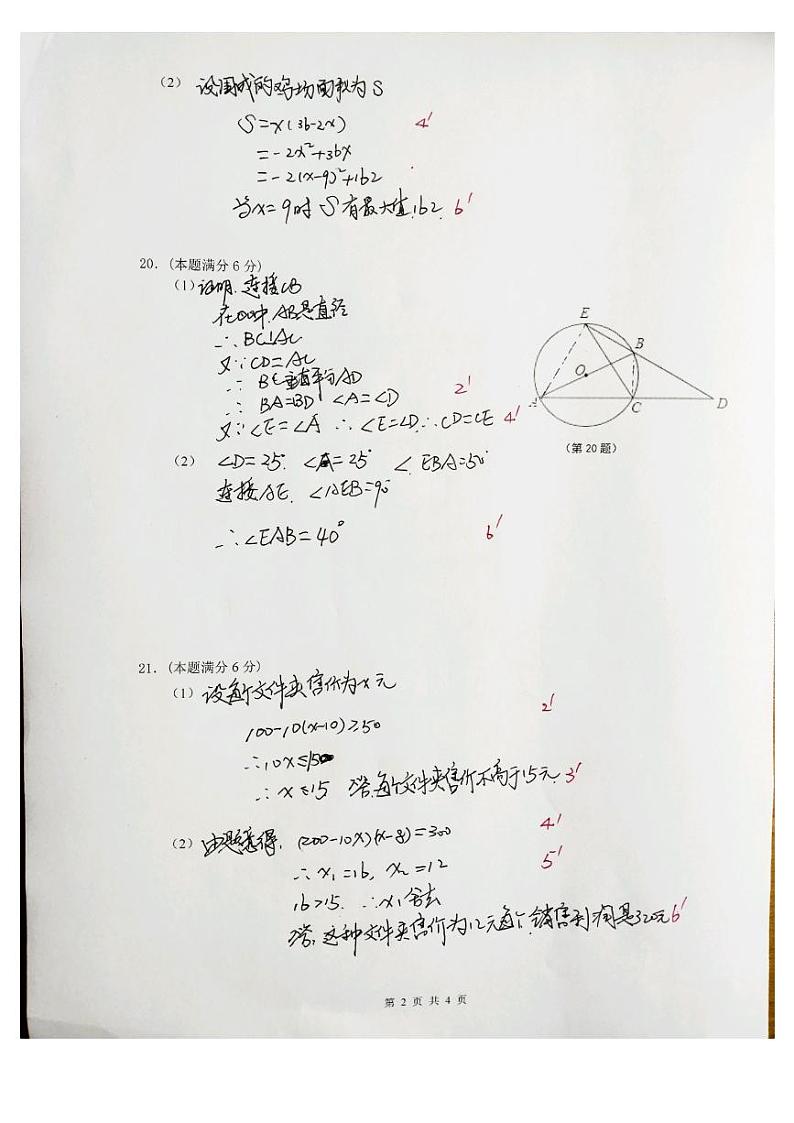 (2) 设围成的鸡场面积为S
S=x(36-2x) 4'
=-2x²+36x
=-2(x-9)²+162
当x=9时 S有最大值162. 6'
20.(本题满分6分)
(1)证明:连接CB
在⊙O中,AB是直径
∴BC⊥AC
又∵CD=AC
∴ BC垂直平分AD
∴ BA=BD ∠A=∠D 2'
又∵∠E=∠A ∴∠E=∠D∴CD=CE 4'
E
B
O
A
C
D
(第20题)
(2) ∠D=25° ∠A=25° ∠EBA=50°
连接AE. ∠AEB=90°
∴∠EAB=40° 6'
21.(本题满分6分)
(1) 设每个文件夹售价为x元
100-10(x-10)≥50 2'
∴10x≤150
∴x≤15 答:每个文件夹售价不高于15元. 3'
(2) 由题意得, (200-10x)(x-8)=300 4'
∴x₁=16, x₂=12 5'
16>15. ∴x₁舍去
答:这种文件夹售价为12元每个,销售利润是320元 6'
第 2 页 共 4 页